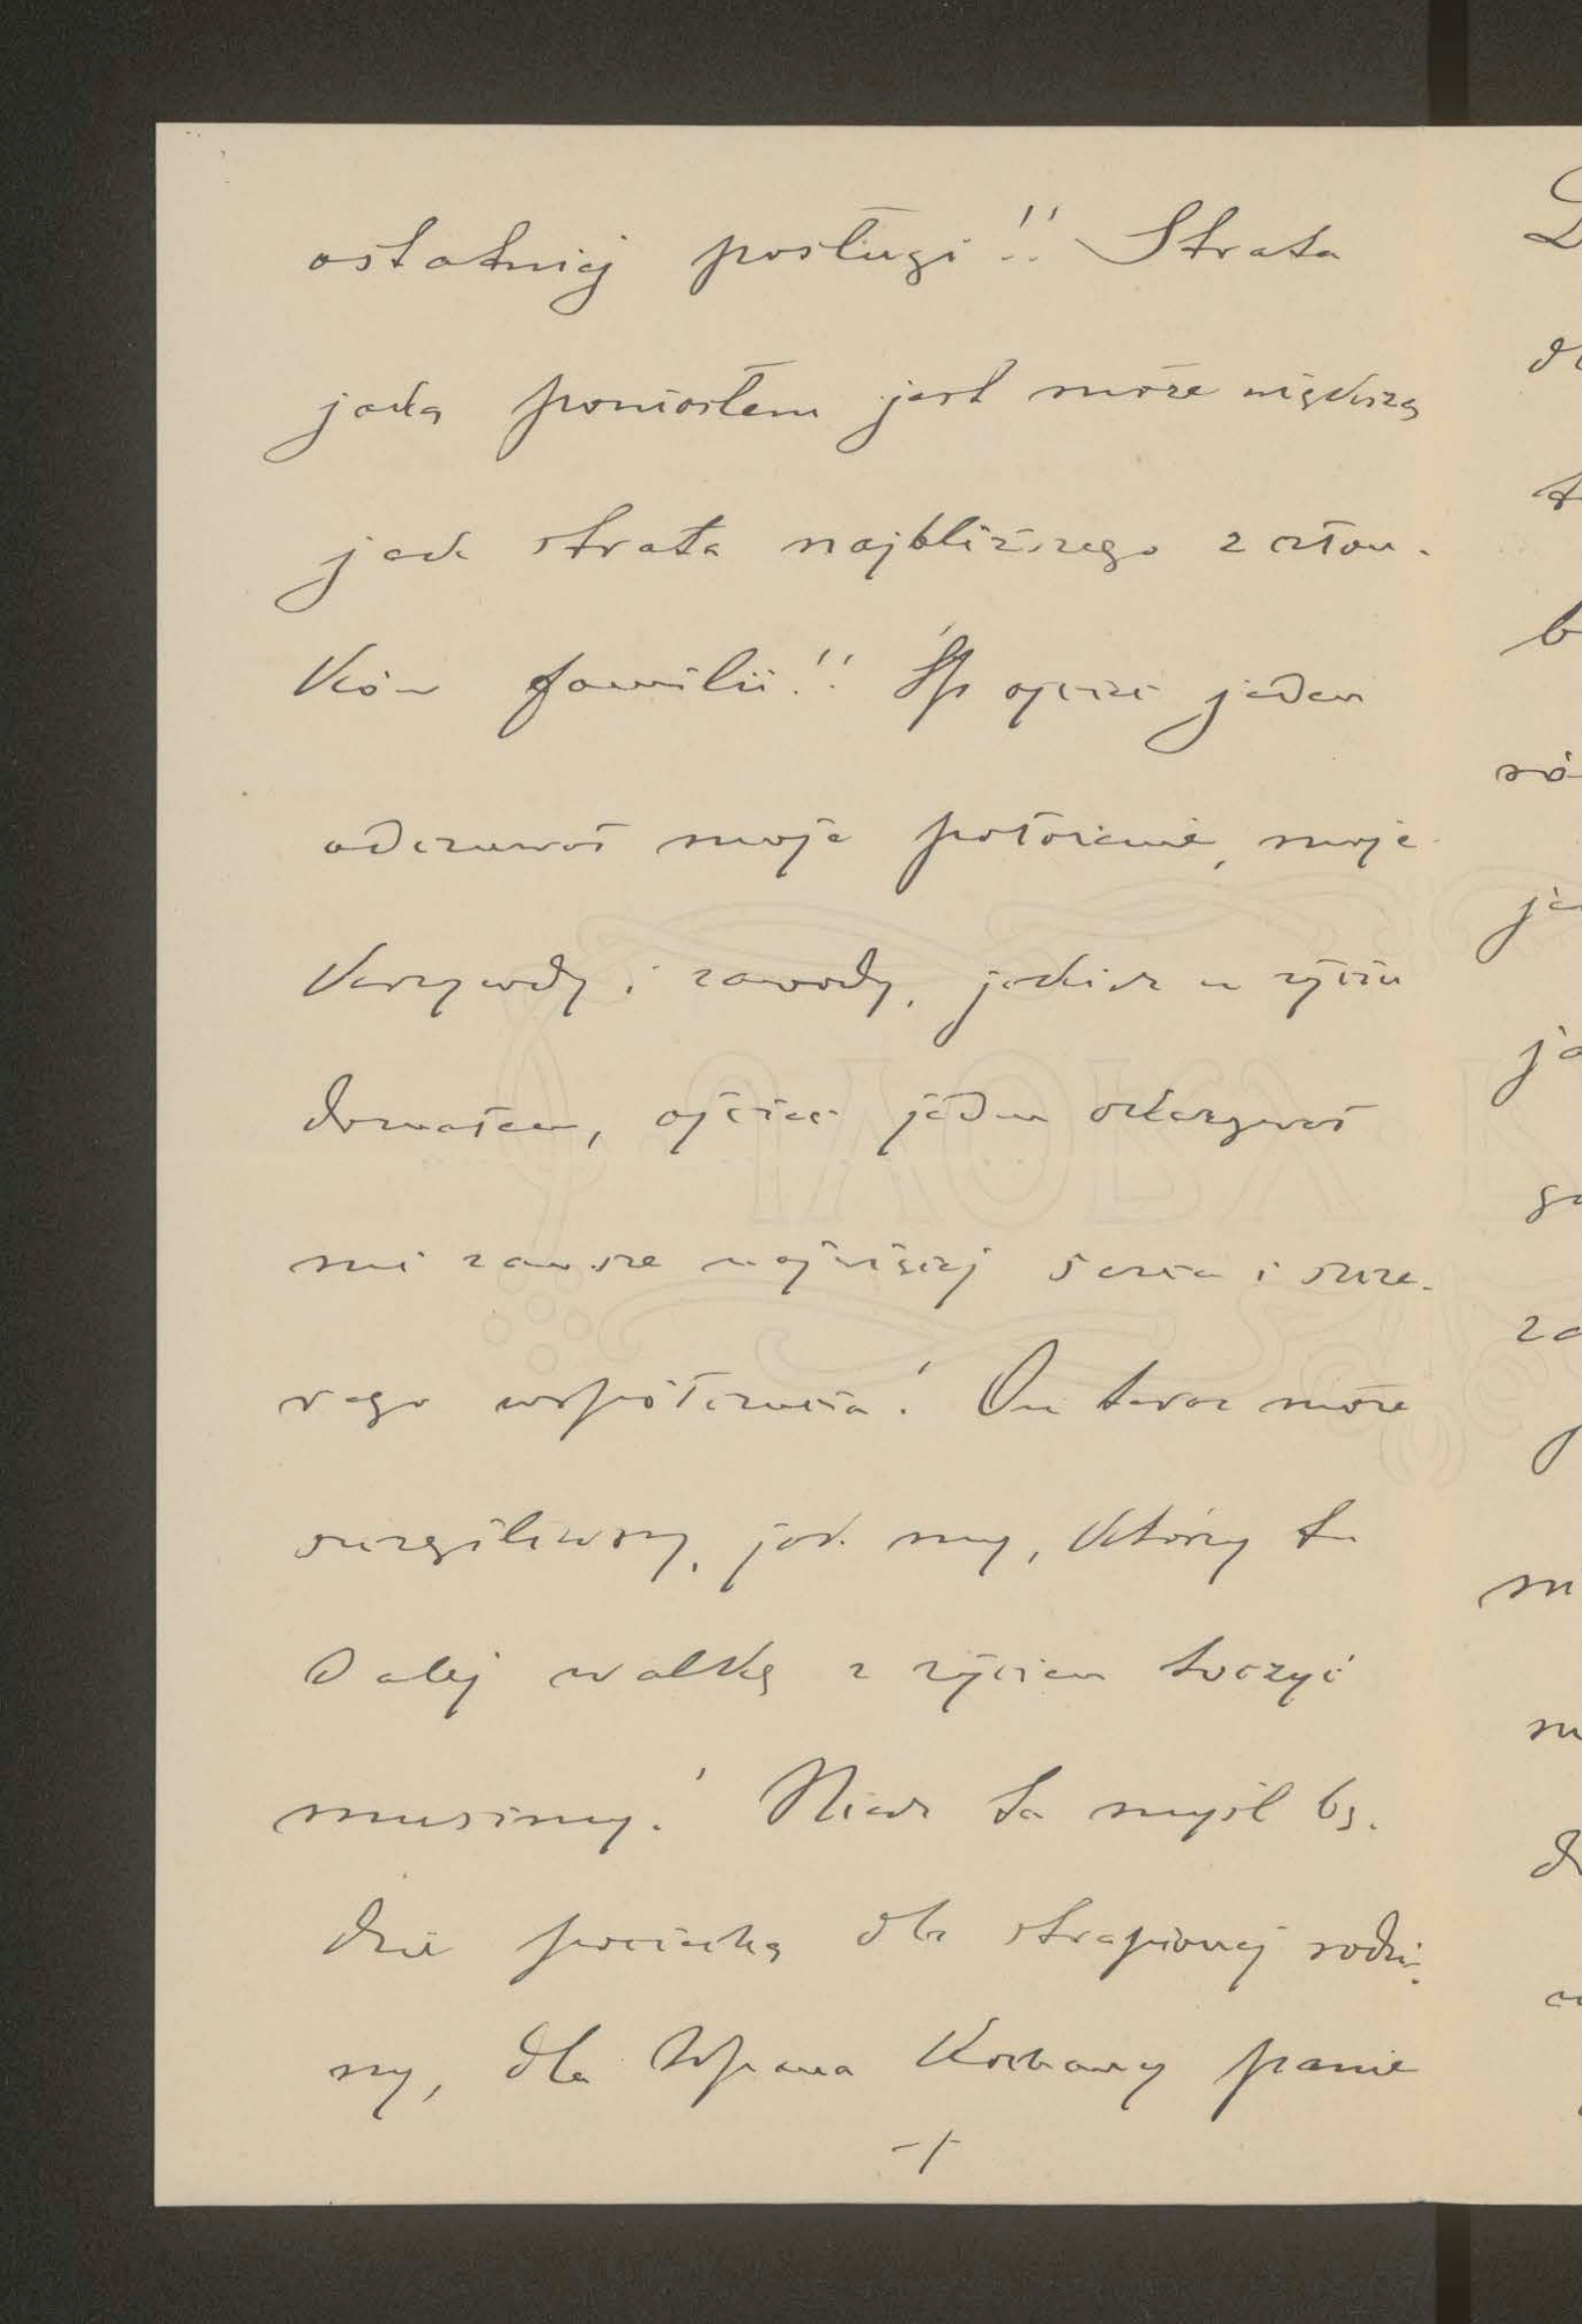 ostatniej posługi!! Strata
jaką poniosłem jest może większą
jak strata najbliższego z człon-
ków familii!! Śp ojciec jeden
odczuwał moje położenie, moje
krzywdy i zawody, jakich w życiu
doznałem, ojciec jeden okazywał
mi zawsze najwięcej serca i szcze-
rego współczucia! On teraz może
szczęśliwszy, jak my, którzy tu
dalej walkę z życiem toczyć
musimy! Niech ta myśl bę-
dzie pociechą dla strapionej rodzi-
ny, dla Wpana Kochany panie
-/-